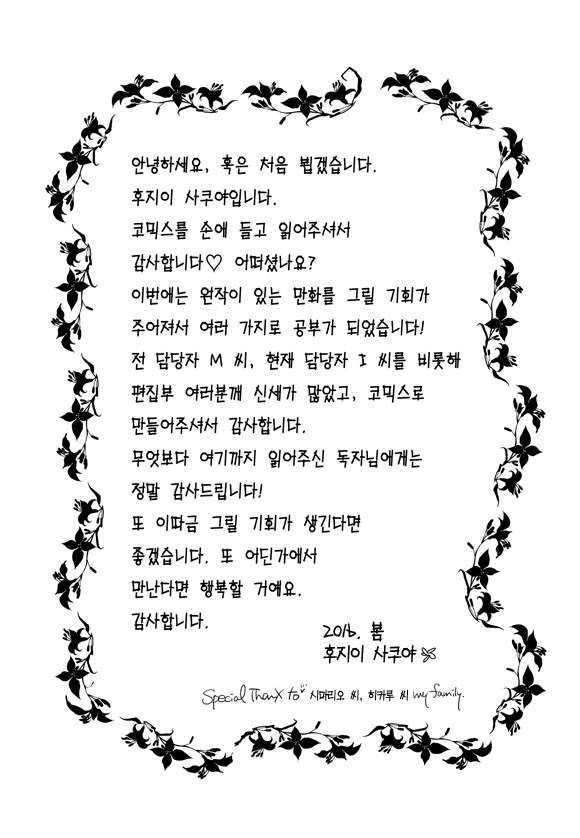 안녕하세요, 혹은 처음 뵙겠습니다.
후지이 사쿠야입니다.
코믹스를 손에 들고 읽어주셔서
감사합니다♡ 어떠셨나요?
이번에는 원작이 있는 만화를 그릴 기회가
주어져서 여러 가지로 공부가 되었습니다!
전 담당자 M 씨, 현재 담당자 I 씨를 비롯해
편집부 여러분께 신세가 많았고, 코믹스로
만들어주셔서 감사합니다.
무엇보다 여기까지 읽어주신 독자님에게는
정말 감사드립니다!
또 이따금 그릴 기회가 생긴다면
좋겠습니다. 또 어딘가에서
만난다면 행복할 거예요.
감사합니다.
2016. 봄
후지이 사쿠야
Special Thanx to♥ 시마리오 씨, 히카루 씨 my family.